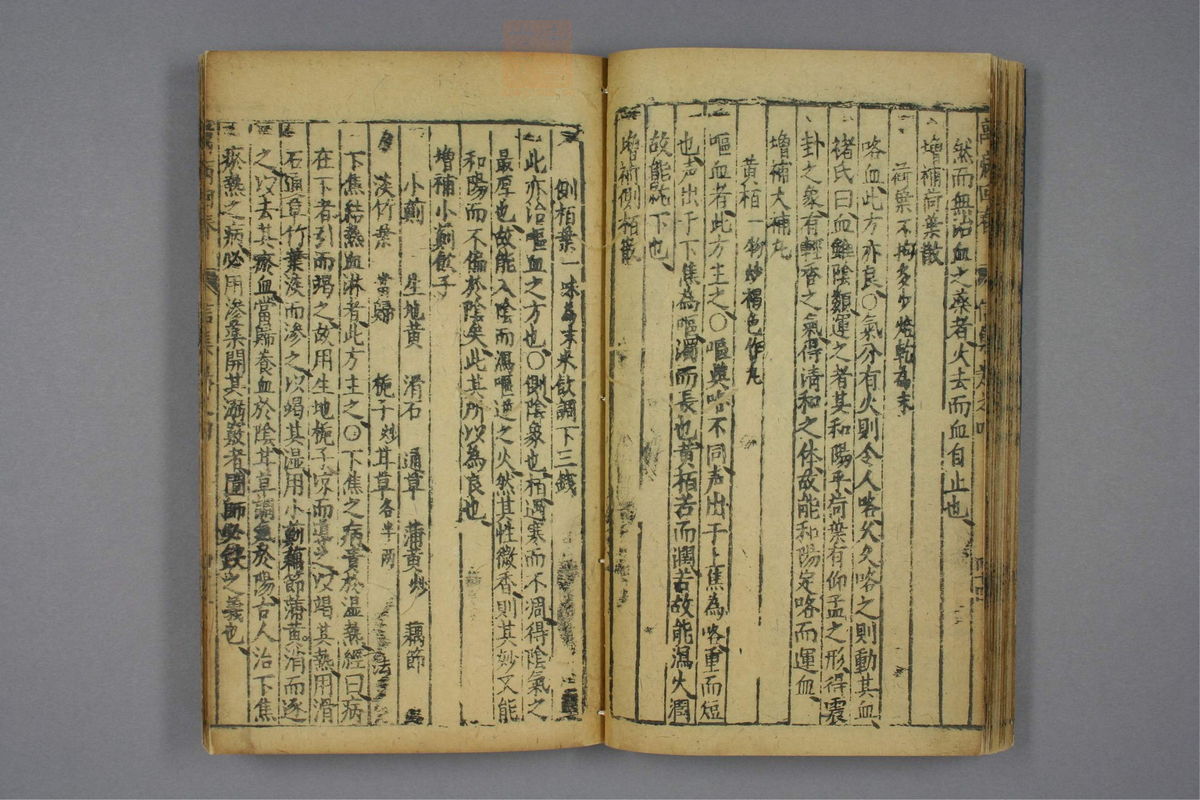 然而無治血之藥者火去而血自止也
增補荷葉散
荷葉不拘多少焙乾為末
咯血此方亦良〇氣分有火則令人咯久久咯之則動其血
褚氏曰血雖陰類運之者其和陽乎荷葉有仰盂之形得震
卦之象有輕香之氣得清和之体故能和陽定咯而運血
增補大補丸
黃栢一物炒褐色作丸
嘔血者此方主之〇嘔與咯不同声出于上焦為咯重而短
也声出于下焦為嘔濁而長也黃栢苦而潤苦故能瀉火潤
故能就下也
增補側栢散
側栢葉一味為末米飲調下三錢
此亦治嘔血之方也〇側陰象也栢遇寒而不凋得陰氣之
最厚也故能入陰而瀉嘔逆之火然其性微香則其妙又能
和陽而不偏於陰矣此其所以為良也
增補小薊飲子
小薊 生地黃 滑石 通草 蒲黃炒 藕節
淡竹葉 當歸 梔子炒 甘草各半兩
下焦結熱血淋者此方主之〇下焦之病責於湿熱經曰病
在下者引而竭之故用生地梔子凉而導之以竭其熱用滑
石通草竹葉淡而滲之以竭其湿用小薊藕節蒲黃消而逐
之以去其瘀血當歸養血於陰甘草調血於陽古人治下焦
瘀熱之病必用滲藥開其溺竅者圍師必缺之義也